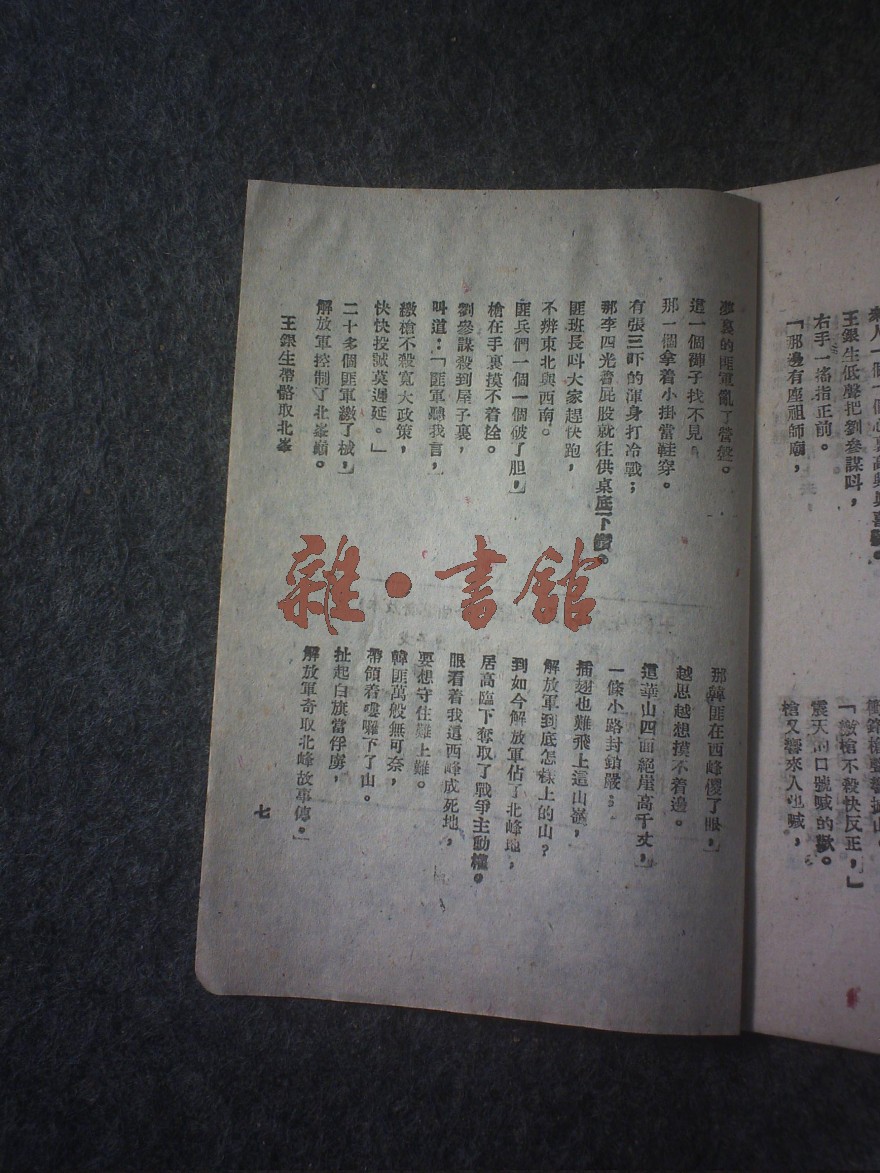 王銀生低聲把劉參謀叫，
右手一搖指正前。
「那邊有座祖師廟，
「繳槍不殺快反正，」
震天的口號喊的歡。
槍又響來人也喊，
夢裏的匪軍亂了營盤。
這一個褲子找不見，
那一個拿着小掛當鞋穿。
有張三吓的渾身打冷戰；
那李四光着屁股就往供桌底下鑽。
匪班長叫大家趕快跑，
不辨東北與西南。
匪兵們一個一個破了胆，
槍在手裏摸不着拴。
劉參謀殺到屋子裏，
叫道：「匪軍聽我言，
繳槍不殺寬大政策，
快快投誠莫遲延。」
二十多個匪軍繳了械，
解放軍控制了北峯巔。
王銀生帶路取北峯
那韓匪在西峰傻了眼，
越思越想摸不着邊。
這華山四面絕崖高千丈，
一條小路封鎖嚴；
插翅也難飛上這山巔，
解放軍到底怎樣上的山？
到如今解放軍佔了北峰地，
居高臨下奪取了戰爭主動權。
眼看着我這西峰成死地，
要想守住難上難。
韓匪萬般無可奈，
帶領着嘍囉下了山。
扯起白旗當俘虜，
解放軍奇取北峰故事傳。
七
雜·書館